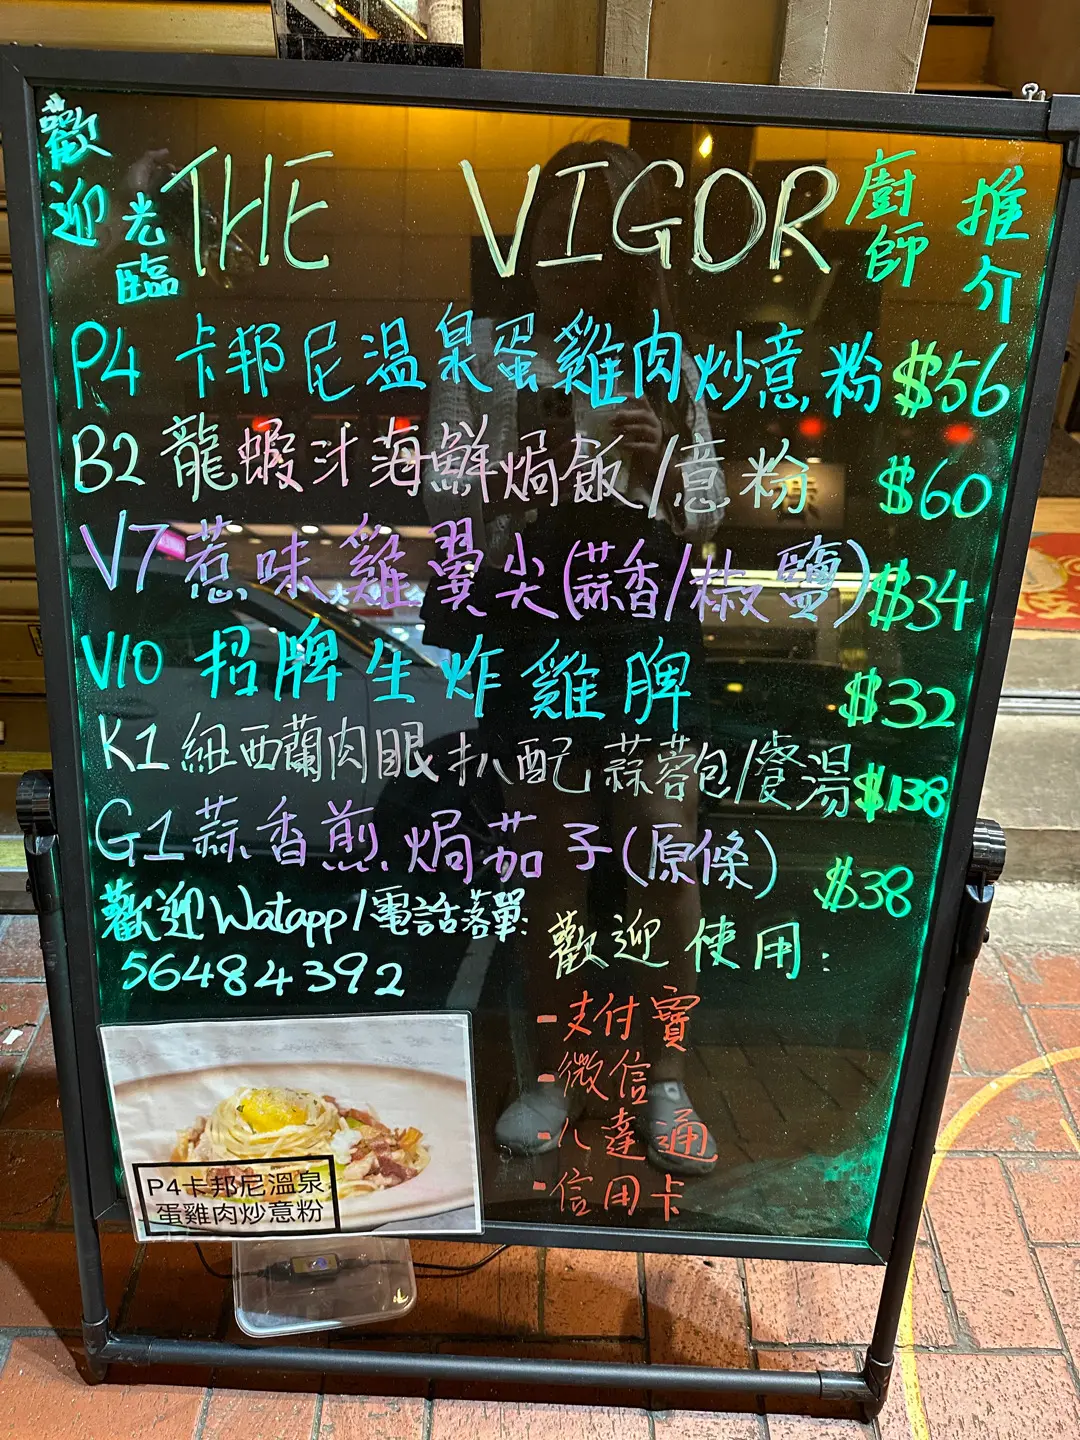 歡迎光臨 THE VIGOR 廚師推介
P4 卡邦尼溫泉蛋雞肉炒意粉 $56
B2 龍蝦汁海鮮焗飯/意粉 $60
V7 惹味雞翼尖(蒜香/椒鹽) $34
V10 招牌生炸雞脾 $32
K1 紐西蘭肉眼扒配蒜蓉包/餐湯 $138
G1 蒜香煎焗茄子(原條) $38
歡迎Watapp/電話落單:
56484392
歡迎使用:
-支付寶
-微信
-八達通
-信用卡
P4卡邦尼溫泉
蛋雞肉炒意粉